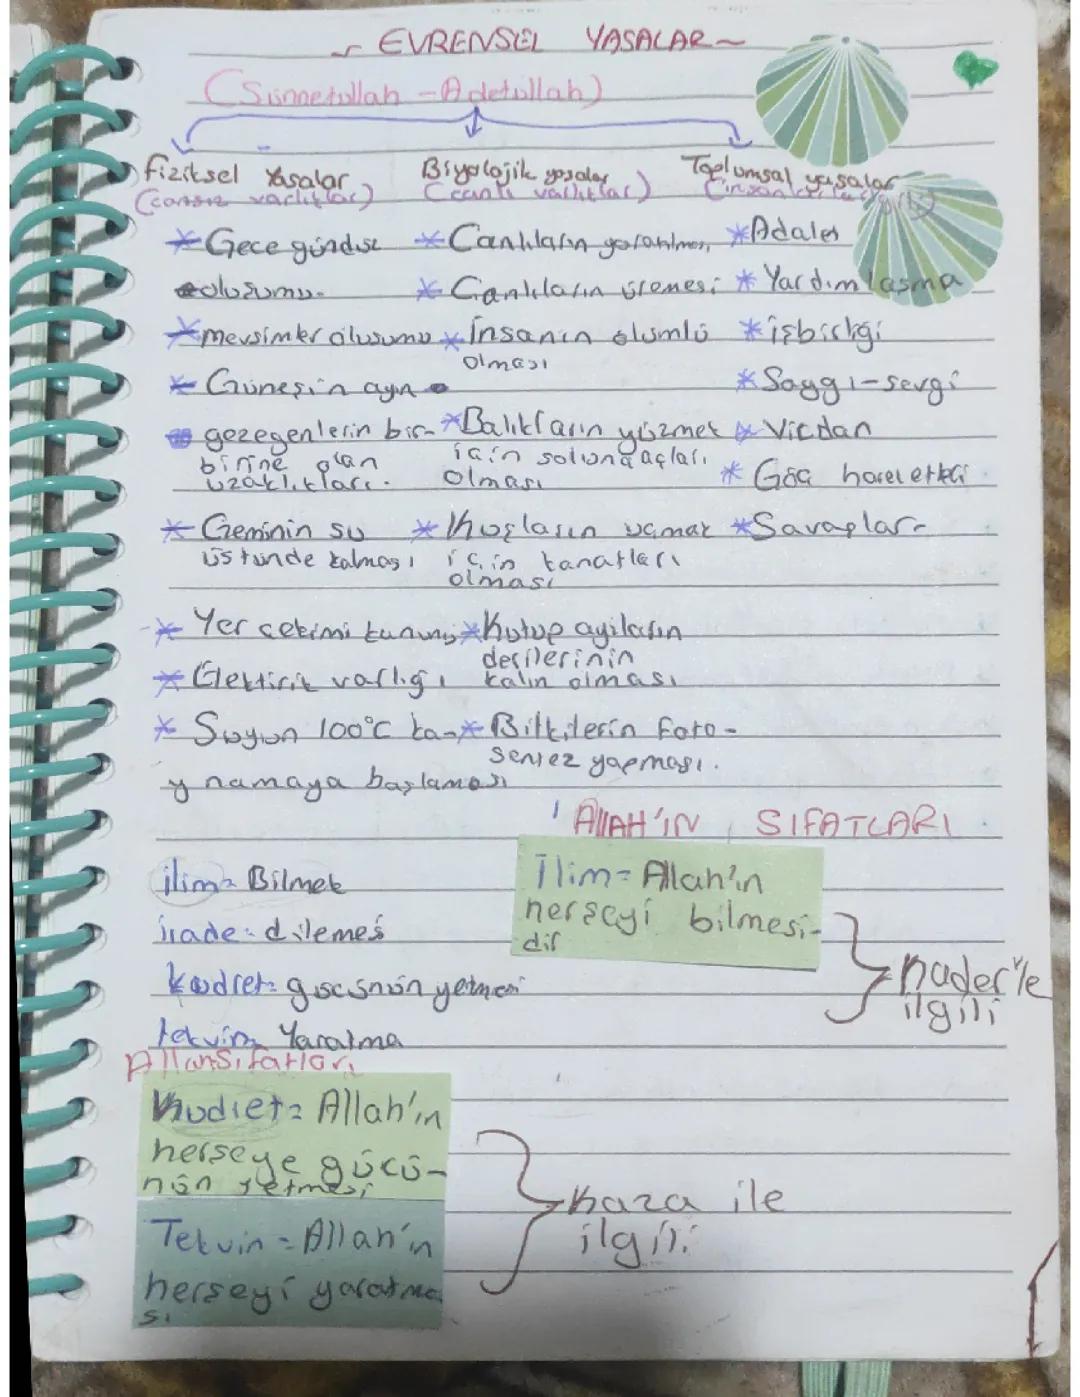 EVRENSEL YASALAR
(Sünnetullah - Adetullah)
Fiziksel Yasalar
(cansız varlıklar)
* Gece gündüz
oluşumu.
* mevsimler oluşumu
* Güneşin ayın
gezegenlerin bir-
birine olan
uzaklıkları.
* Geminin su
üstünde kalması
* Yer çekimi kanunu
* Elektirik varlığı
* Suyun 100°C ka-
ynamaya başlaması
Biyolojik yasalar
(canlı varlıklar)
* Canlıların yaratılması
* Canlıların üremesi
* İnsanın ölümlü
olması
* Balıkların yüzmek
için solungaçları
olması
* Kuşların uçmak
için kanatları
olması
* Kutup ayıların
derilerinin
kalın olması
* Bitkilerin foto-
sentez yapması.
Toplumsal yasalar
* Adalet
* Yardımlaşma
* işbirliği
* Saygı-sevgi
* Vicdan
* Göç hareketleri
* Savaşlar
ALLAH'IN SIFATLARI
ilim = Bilmek
irade = dilemes
kudret = gücünün yetmesi
tekvin = Yaratma
İlim = Allah'ın
herşeyi bilmesi-
dir
kader'le
ilgili
Allah Sıfatları
Kudret = Allah'ın
herşeye gücü-
nün yetmesi
Tekvin = Allah'ın
herşeyi yaratma
sı
kaza ile
ilgili